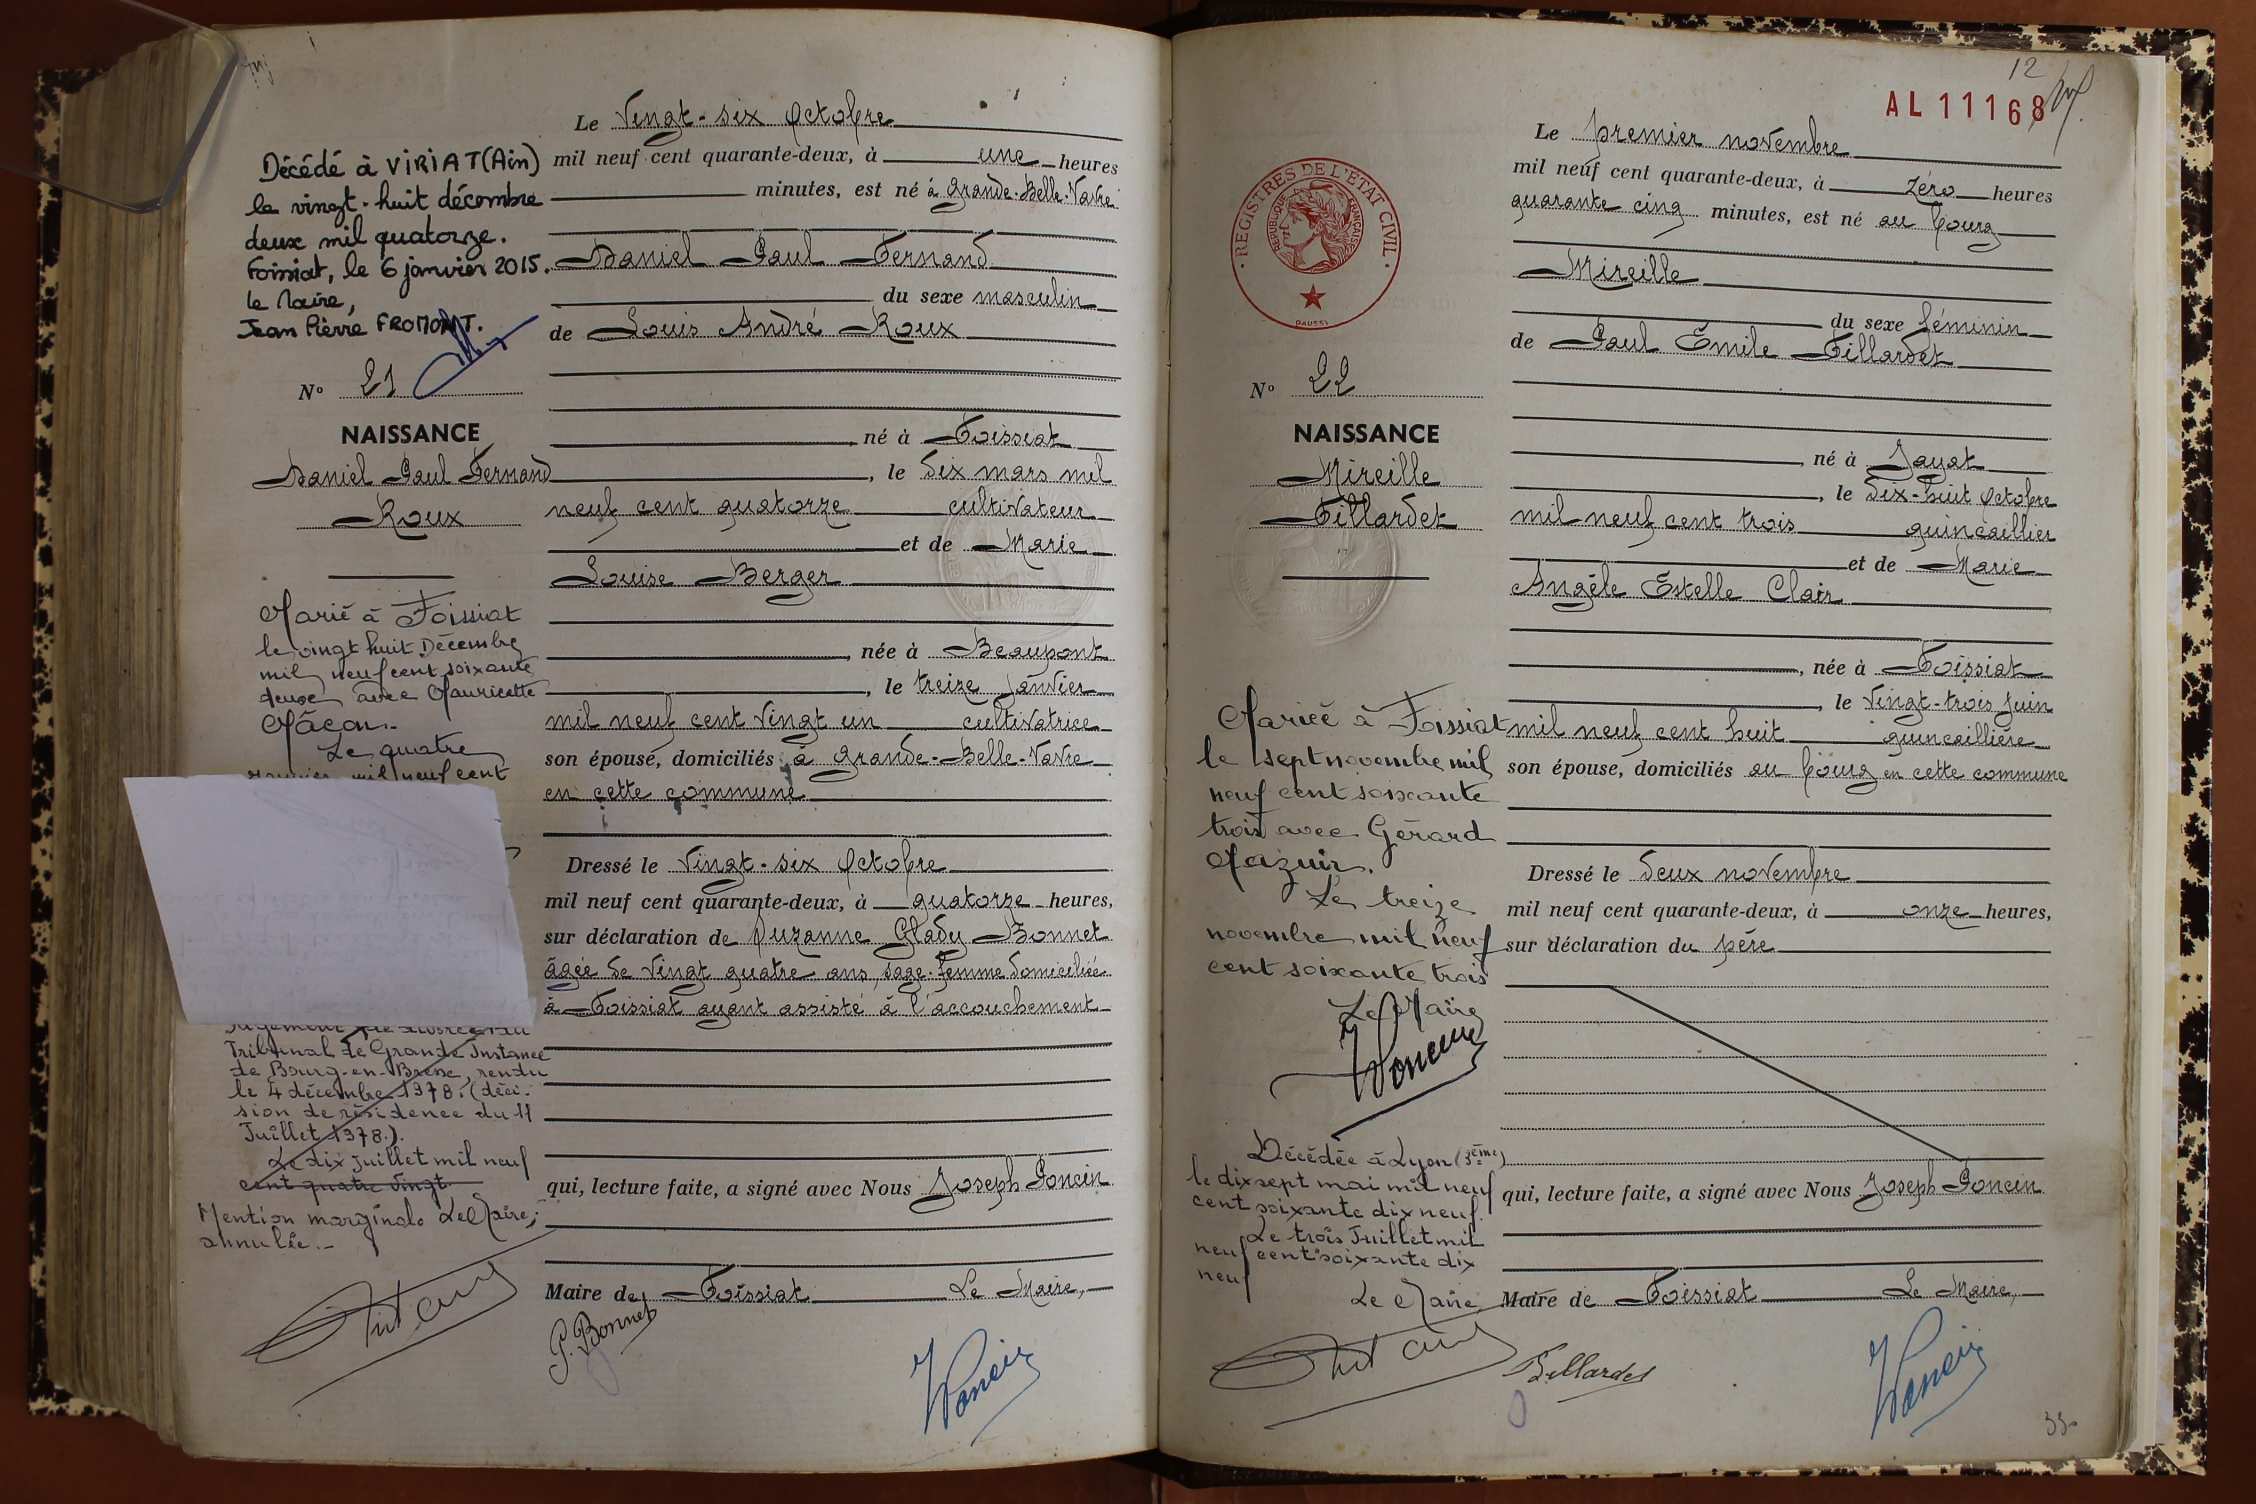 Le Vingt-six Octobre
mil neuf cent quarante-deux, à une heures
minutes, est né à Grande-Belle-Vavre
Daniel Paul Fernand
du sexe masculin
de Louis André Roux
né à Foissiat
, le dix mars mil
neuf cent quatorze cultivateur
et de Marie
Louise Berger
, née à Beaupont
, le treize Janvier
mil neuf cent vingt un cultivatrice
son épouse, domiciliés à Grande-Belle-Vavre
en cette commune
Dressé le Vingt-six Octobre
mil neuf cent quarante-deux, à quatorze heures,
sur déclaration de Suzanne Glady Bonnet
âgée de vingt quatre ans, sage-femme domiciliée
à Foissiat ayant assisté à l'accouchement
qui, lecture faite, a signé avec Nous Joseph Poncin
Maire de Foissiat Le Maire,
Décédé à VIRIAT (Ain)
le vingt-huit décembre
deux mil quatorze.
Foissiat, le 6 janvier 2015.
le Maire,
Jean Pierre FROMONT.
N° 21
NAISSANCE
Daniel Paul Fernand
Roux
Marié à Foissiat
le vingt huit Décembre
mil neuf cent soixante
deux avec Mauricette
Mâcon.-
Le quatre
janvier mil neuf cent
Jugement de divorce du
Tribunal de Grande Instance
de Bourg-en-Bresse, rendu
le 4 décembre 1978. (déci-
sion de résidence du 11
Juillet 1978.).
Le dix juillet mil neuf
cent quatre vingt
Mention marginale Le Maire,
annulée.-
P. Bonnet
Poncin
12
AL 11168
REGISTRES DE L'ETAT CIVIL
REPUBLIQUE FRANÇAISE
DAUSSY
Le premier novembre
mil neuf cent quarante-deux, à zéro heures
quarante cinq minutes, est né au bourg
Mireille
du sexe féminin
de Paul Emile Tillardet
, né à Jayat
, le dix-huit Octobre
mil neuf cent trois quincaillier
et de Marie
Angèle Estelle Clair
, née à Foissiat
, le Vingt-trois Juin
mil neuf cent huit quincaillière
son épouse, domiciliés au bourg en cette commune
Dressé le deux novembre
mil neuf cent quarante-deux, à onze heures,
sur déclaration du père
qui, lecture faite, a signé avec Nous Joseph Poncin
Maire de Foissiat Le Maire,
N° 22
NAISSANCE
Mireille
Tillardet
Mariée à Foissiat
le sept novembre mil
neuf cent soixante
trois avec Gérard
Mazuir.
Le treize
novembre mil neuf
cent soixante trois
Le Maire
Poncin
Décédée à Lyon (3ème)
le dix sept mai mil neuf
cent soixante dix neuf.
Le trois Juillet mil
neuf cent soixante dix
neuf
Le Maire
Tillardet
Poncin